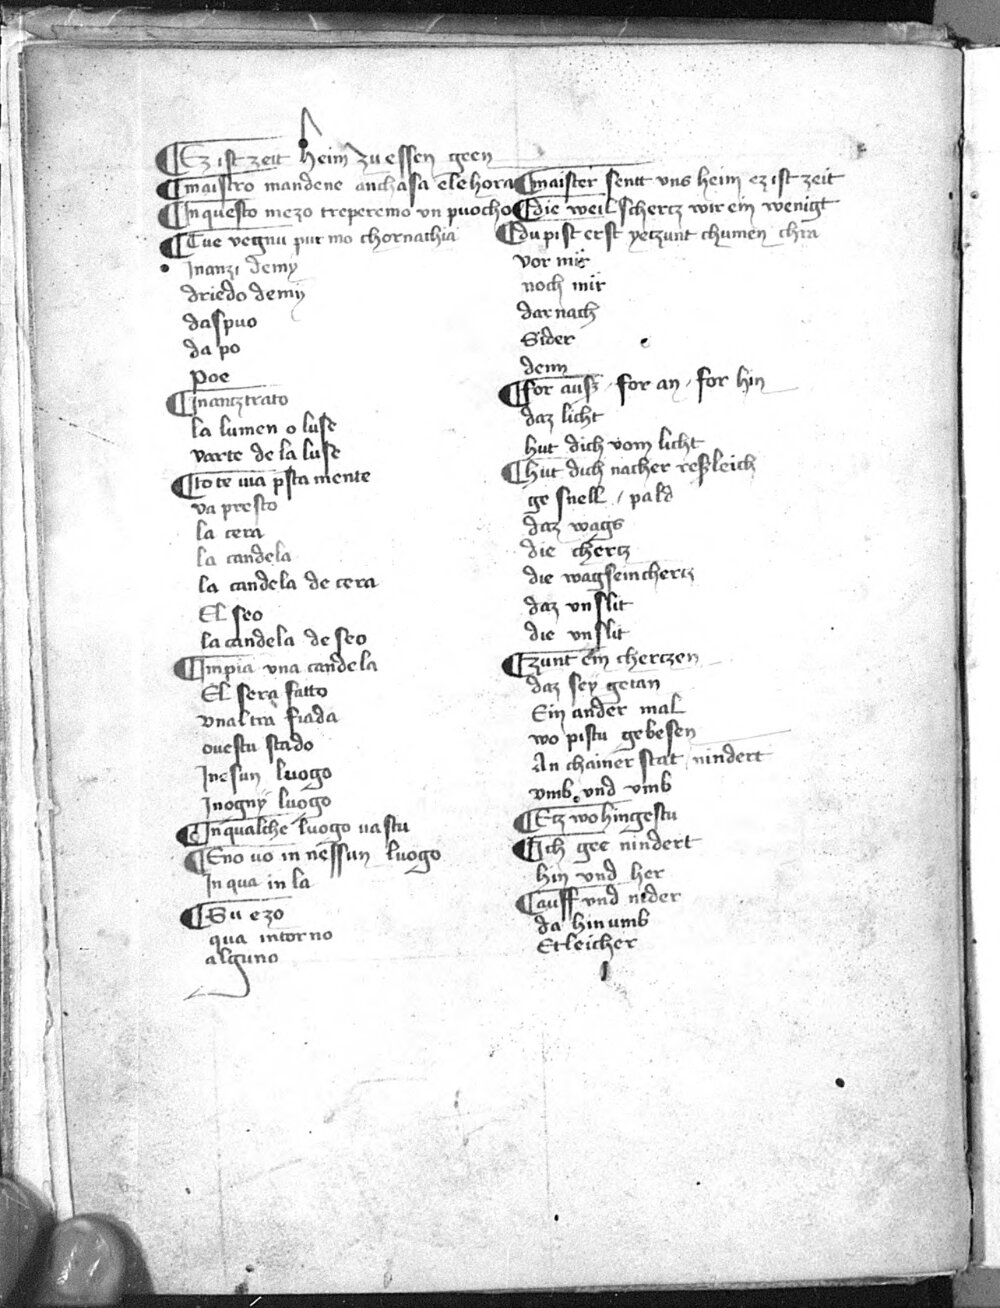 Ez ist zeit heim zu essen geen
maistro mandene anchasa ele hora
maister sentt vns heim ez ist zeit
In questo mezo treperemo vn puocho
die weil schertz wir ein wenigt
Tue vegnu pur mo chornachia
du pist erst yetzunt chumen chra
Inanzi demy
vor mir
driedo demy
noch mir
daspuo
dar nach
da po
Sider
poe
denn
Inantztrato
for auß / for an / for hin
la lumen o luse
daz licht
varte de la luse
hut dich vom licht
to te uia psta mente
hut dich nacher reßleich
va presto
ge snell / pald
la cera
daz wags
la candela
die chertz
la candela de cera
die wagsein chertz
El seo
daz vnslit
la candela de seo
die vnslit
Impia vna candela
zunt ein chertzen
El sera fatto
daz sey getan
vnaltra fiada
Ein ander mal
ouestu stado
wo pistu gebesen
In esun luogo
An chainer stat / nindert
In ogny luogo
vmb vnd vmb
In qualche luogo uastu
Etz wo hingestu
Eno uo in nessun luogo
Ich gee nindert
In qua in la
hin vnd her
Su ezo
auff vnd nider
qua intorno
da hin umb
alguno
Etleicher